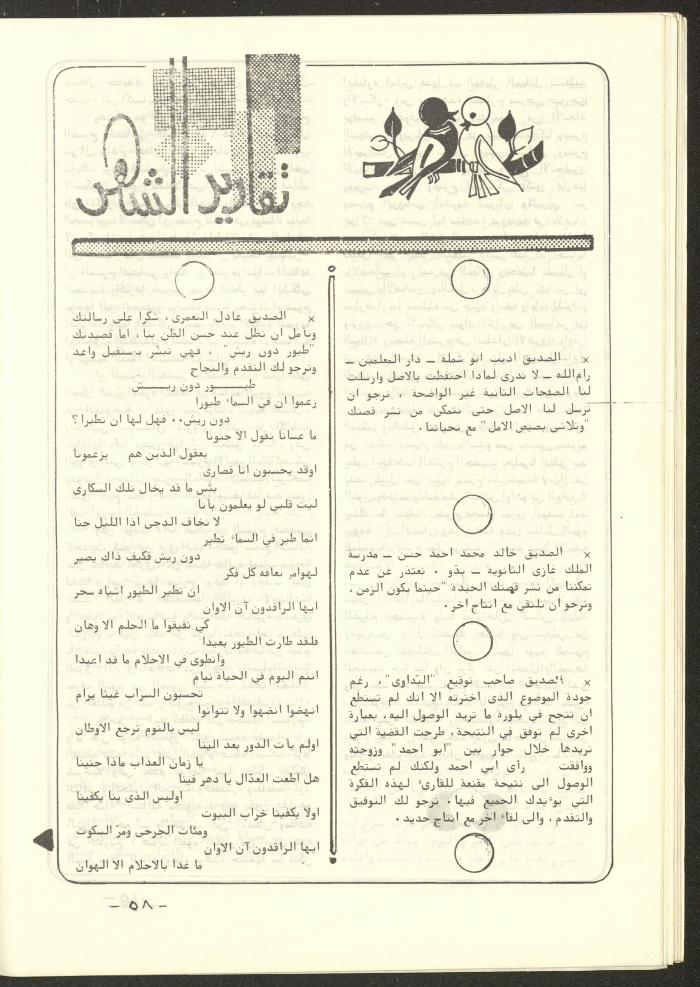 تقارير الشهر
× الصديق اديب ابو شملة ــ دار المعلمين ــ
رام الله ــ لا ندري لماذا احتفظت بالاصل وارسلت
لنا الصفحات الثانية غير الواضحة ، نرجو ان
ترسل لنا الاصل حتى نتمكن من نشر قصتك
"وتلاشى بصيص الامل" مع تحياتنا .
× الصديق خالد محمد احمد حسن ــ مدرسة
الملك غازي الثانوية ــ بدّو . نعتذر عن عدم
تمكننا من نشر قصتك الجيدة "حينما يكون الزمن ،
ونرجو ان نلتقي مع انتاج اخر .
× الصديق صاحب توقيع "البداوي" ، رغم
جودة الموضوع الذي اخترته الا انك لم تستطع
ان تنجح في بلورة ما تريد الوصول اليه، بعبارة
اخرى لم توفق في النتيجة، طرحت القضية التي
تريدها خلال حوار بين "ابو احمد" وزوجته
ووافقت رأى ابي احمد ولكنك لم تستطع
الوصول الى نتيجة مقنعة للقارئ لهذه الفكرة
التي يوٴيدك الجميع فيها. نرجو لك التوفيق
والتقدم ، والى لقاء اخر مع انتاج جديد .
× الصديق عادل النعمري، شكرا على رسالتك
ونأمل ان نظل عند حسن الظن بنا، اما قصيدتك
"طيور دون ريش" ، فهي تبشّر بمستقبل واعد
ونرجو لك التقدم والنجاح
طيــــور دون ريـــش
زعموا ان في السماء طيورا
دون ريش.. فهل لها ان تطيرا ؟
ما عسانا نقول الا جنونا
بعقول الذين هم يزعمونا
اوقد يحسبون انا قصارى
بئس ما قد يخال تلك السكارى
ليت قلبي لو يعلمون بأنا
لا نخاف الدجى اذا الليل جنا
انما طير في السماء تطير
دون ريش فكيف ذاك يصير
لهوامر نعافه كل فكر
ان تطير الطيور اشباه سحر
ايها الراقدون آن الاوان
كي تفيقوا ما الحلم الا وهان
فلقد طارت الطيور بعيدا
وانطوى في الاحلام ما قد اعيدا
انتم اليوم في الحياة نيام
تحسبون السراب غيبا يرام
انهضوا انهضوا ولا تتوانوا
ليس بالنوم ترجع الاوطان
اولم يأت الدور بعد الينا
يا زمان العذاب ماذا جنينا
هل اطعت العذّال يا دهر فينا
اوليس الذي بنا يكفينا
اولا يكفينا خراب البيوت
ومئات الجرحى ومرّ السكوت
ايها الراقدون آن الاوان
ما غدا بالاحلام الا الهوان
- ٥٨ -